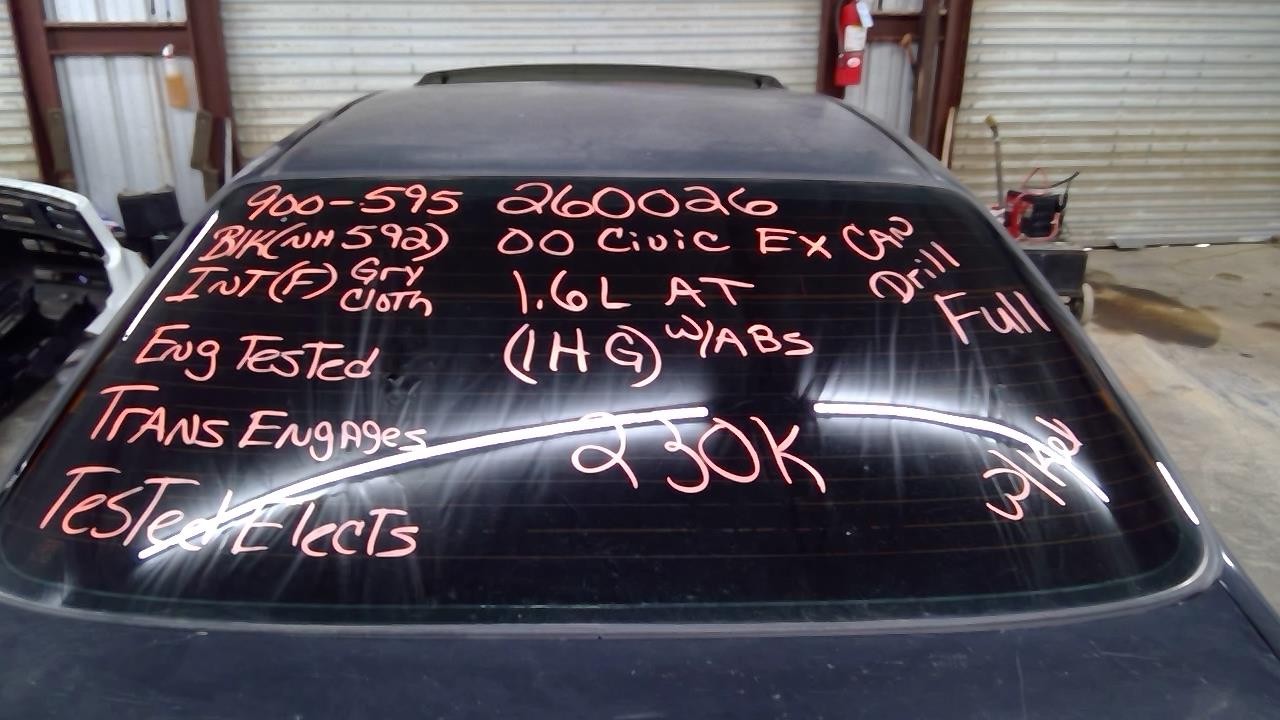 900-595 260026
Blk(NH592) 00 Civic Ex CAN
Drill
INT(F) Gry Cloth 1.6L AT Full
Eng Tested (1HG) w/ABS
TRANS Engages 230K
Tested Elects